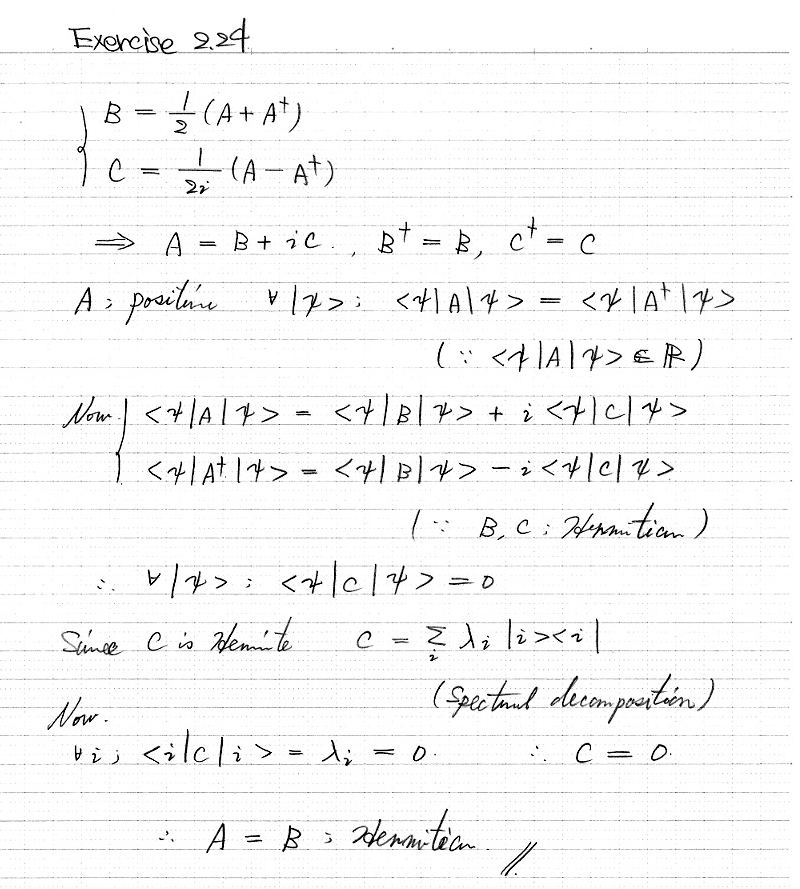 Exercise 2.24
B = 1/2 (A + A†)
C = 1/2i (A − A†)
⟹ A = B + iC., B† = B, C† = C
A ; positive ∀|ψ>; <ψ|A|ψ> = <ψ|A†|ψ>
(∵ <ψ|A|ψ> ∈ ℝ)
Now <ψ|A|ψ> = <ψ|B|ψ> + i<ψ|C|ψ>
<ψ|A†|ψ> = <ψ|B|ψ> − i<ψ|C|ψ>
(∵ B, C ; Hermitian)
∴ ∀|ψ>; <ψ|C|ψ> = 0
Since C is Hermite C = Σ_i λ_i |i><i|
(Spectral decomposition)
Now.
∀i; <i|C|i> = λ_i = 0. ∴ C = 0.
∴ A = B ; Hermitian. //